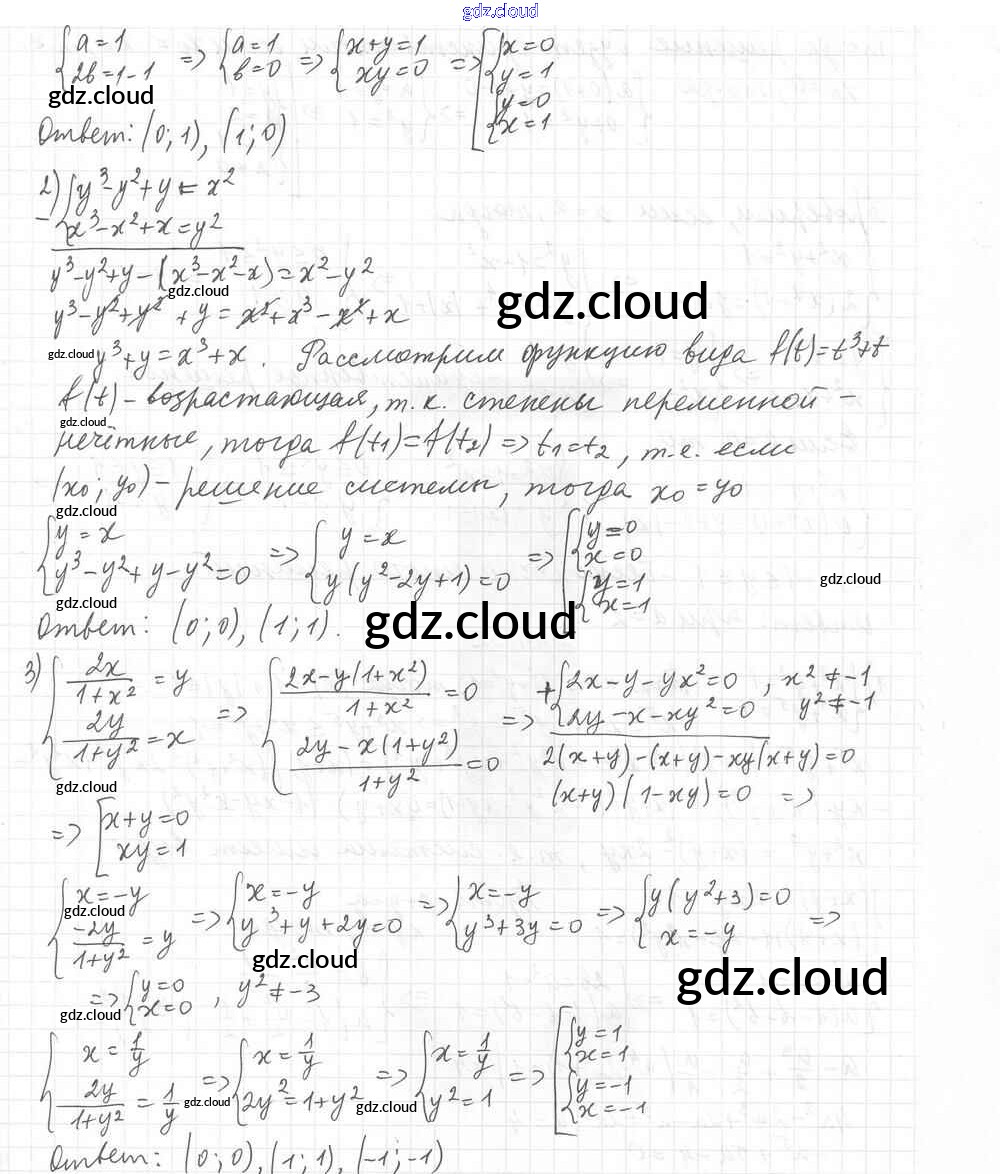 gdz.cloud
{a=1 {2b=1-1 => {a=1 {b=0 => {x+y=1 {xy=0 => [{x=0 {y=1 {y=0 {x=1
gdz.cloud
Ответ: (0; 1), (1; 0)
2) {y³-y²+y=x²
- {x³-x²+x=y²
y³-y²+y-(x³-x²-x)=x²-y²
gdz.cloud
y³-y²+y²+y=x²+x³-x²+x
gdz.cloud
gdz.cloud y³+y=x³+x. Рассмотрим функцию вида f(t)=t³+t
f(t) - возрастающая, т.к. степены переменной -
gdz.cloud
нечётные, тогда f(t₁)=f(t₂) => t₁=t₂, т.е. если
(x₀; y₀) - решение системы, тогда x₀=y₀
gdz.cloud
{y=x {y³-y²+y-y²=0 => {y=x {y(y²-2y+1)=0 => [{y=0 {x=0 {y=1 {x=1
gdz.cloud
gdz.cloud
Ответ: (0; 0), (1; 1).
gdz.cloud
3) {2x/(1+x²)=y {2y/(1+y²)=x => {(2x-y(1+x²))/(1+x²)=0 {(2y-x(1+y²))/(1+y²)=0 => + {2x-y-yx²=0, x²≠-1 {2y-x-xy²=0 y²≠-1
2(x+y)-(x+y)-xy(x+y)=0
gdz.cloud
(x+y)(1-xy)=0 =>
=> [x+y=0 xy=1
{x=-y {-2y/(1+y²)=y => {x=-y {y³+y+2y=0 => {x=-y {y³+3y=0 => {y(y²+3)=0 {x=-y =>
gdz.cloud
gdz.cloud
gdz.cloud
=> {y=0 {x=0, y²≠-3
gdz.cloud
{x=1/y {2y/(1+y²)=1/y => {x=1/y {2y²=1+y² => {x=1/y {y²=1 => [{y=1 {x=1 {y=-1 {x=-1
gdz.cloud
gdz.cloud
Ответ: (0; 0), (1; 1), (-1; -1)